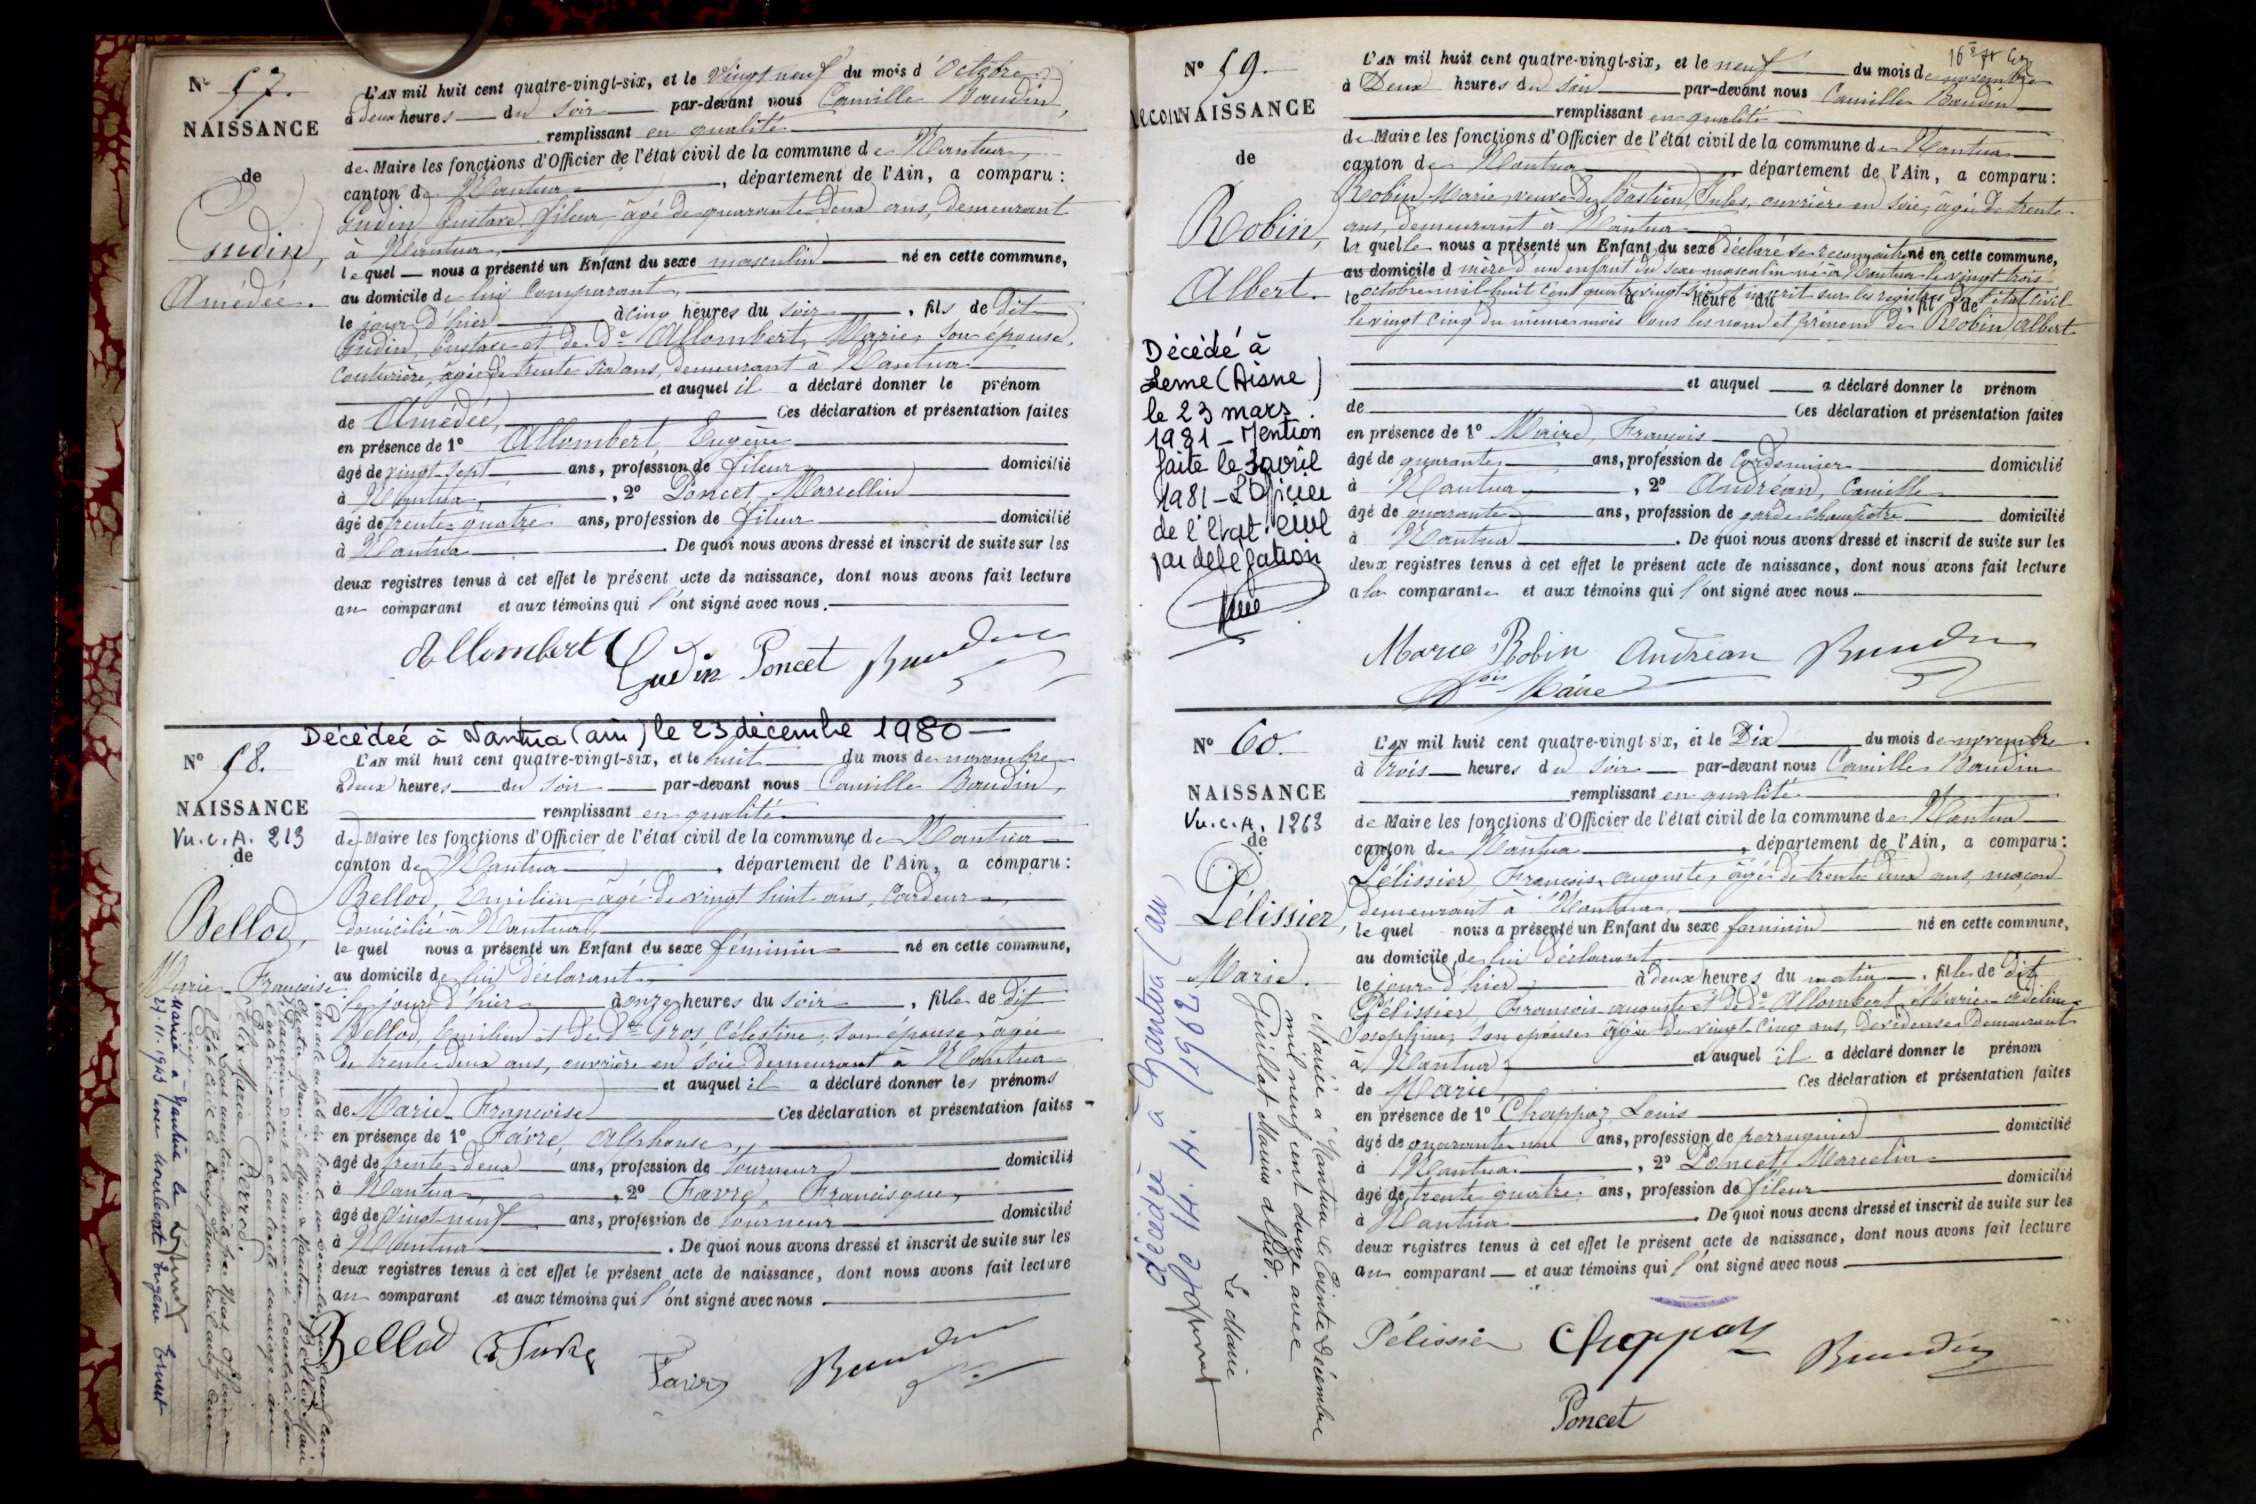 N° 57.
NAISSANCE
de
Gudin,
Amédée.
L'AN mil huit cent quatre-vingt-six, et le vingt neuf du mois d'Octobre
à deux heures du soir par-devant nous Camille Baudin,
remplissant en qualité
de Maire les fonctions d'Officier de l'état civil de la commune de Nantua,
canton de Nantua, département de l'Ain, a comparu :
Gudin, Gustave, fileur, âgé de quarante deux ans, demeurant
à Nantua,
lequel nous a présenté un Enfant du sexe masculin né en cette commune,
au domicile de lui comparant,
le jour d'hier à cinq heures du soir, fils de dit
Gudin, Gustave et de de Allombert, Marie, son épouse,
couturière, âgée de trente six ans, demeurant à Nantua
et auquel il a déclaré donner le prénom
de Amédée, Ces déclaration et présentation faites
en présence de 1° Allombert, Eugène
âgé de vingt-sept ans, profession de fileur domicilié
à Nantua, 2° Poncet, Marcellin
âgé de trente-quatre ans, profession de fileur domicilié
à Nantua. De quoi nous avons dressé et inscrit de suite sur les
deux registres tenus à cet effet le présent acte de naissance, dont nous avons fait lecture
au comparant et aux témoins qui l'ont signé avec nous.
Allombert Gudin Poncet Baudin
Décédée à Nantua (ain) le 23 décembre 1980
N° 58.
NAISSANCE
Vu.c.A. 213
de
Bellod,
Marie-Françoise
L'AN mil huit cent quatre-vingt-six, et le huit du mois de novembre
à deux heures du soir par-devant nous Camille Baudin,
remplissant en qualité
de Maire les fonctions d'Officier de l'état civil de la commune de Nantua
canton de Nantua, département de l'Ain, a comparu :
Bellod, Emilien, âgé de vingt huit ans, cardeur,
domicilié à Nantua,
lequel nous a présenté un Enfant du sexe féminin né en cette commune,
au domicile de lui déclarant
le jour d'hier à onze heures du soir, fille de dit
Bellod, Emilien et de de Gros, Célestine, son épouse, âgée
de trente deux ans, ouvrière en soie, demeurant à Nantua
et auquel il a déclaré donner les prénoms
de Marie-Françoise Ces déclaration et présentation faites
en présence de 1° Favre, Alphonse,
âgé de trente-deux ans, profession de tourneur domicilié
à Nantua, 2° Favre, Francisque,
âgé de vingt neuf ans, profession de tourneur domicilié
à Nantua. De quoi nous avons dressé et inscrit de suite sur les
deux registres tenus à cet effet le présent acte de naissance, dont nous avons fait lecture
au comparant et aux témoins qui l'ont signé avec nous.
Bellod Favre Baudin
Félix Marie Perrod.
Mariée à Nantua le
27.11.1943 avec Eugène Ernest
N° 59.
ReconNAISSANCE
de
Robin,
Albert.
Décédé à
Leme (Aisne)
le 23 mars
1981 - Mention
faite le 3 avril
1981 - L'Officier
de l'Etat Civil
par délégation
L'AN mil huit cent quatre-vingt-six, et le neuf du mois de novembre
à Deux heures du soir par-devant nous Camille Baudin
remplissant en qualité
de Maire les fonctions d'Officier de l'état civil de la commune de Nantua
canton de Nantua département de l'Ain, a comparu :
Robin, Marie, veuve de Bastien, Jules, ouvrière en soie, âgée de trente
ans, demeurant à Nantua
laquelle nous a présenté un Enfant du sexe déclaré se reconnaître né en cette commune,
au domicile d mère d'un enfant du sexe masculin né à Nantua le vingt trois
le octobre mil huit cent quatre vingt six et inscrit sur les registres de l'état civil
heure du, fil de
le vingt cinq du même mois sous les nom et prénom de Robin, Albert
et auquel a déclaré donner le prénom
de Ces déclaration et présentation faites
en présence de 1° Maire, François
âgé de quarante ans, profession de cordonnier domicilié
à Nantua, 2° Andréan, Camille
âgé de quarante ans, profession de garde champêtre domicilié
à Nantua. De quoi nous avons dressé et inscrit de suite sur les
deux registres tenus à cet effet le présent acte de naissance, dont nous avons fait lecture
à la comparante et aux témoins qui l'ont signé avec nous.
Marie Robin Andrean Baudin
fois Maire
N° 60.
NAISSANCE
Vu.c.A. 1263
de
Pélissier,
Marie.
Mariée à Nantua le trente Décembre
mil neuf cent douze avec
Guillot Marius Alfred.
Le Maire
Décédée à Nantua (ain)
le 14.4.1962
L'AN mil huit cent quatre-vingt-six, et le Dix du mois de novembre
à trois heures du soir par-devant nous Camille Baudin
remplissant en qualité
de Maire les fonctions d'Officier de l'état civil de la commune de Nantua
canton de Nantua, département de l'Ain, a comparu :
Pélissier, François auguste, âgé de trente deux ans, maçon
demeurant à Nantua,
lequel nous a présenté un Enfant du sexe féminin né en cette commune,
au domicile de lui déclarant
le jour d'hier à deux heures du matin, fille de dit
Pélissier, François auguste et de de Allombert, Marie-adeline
Josephine, son épouse, âgée de vingt cinq ans, dévideuse, demeurant
à Nantua et auquel il a déclaré donner le prénom
de Marie, Ces déclaration et présentation faites
en présence de 1° Chappaz, Louis
âgé de quarante un ans, profession de perruquier domicilié
à Nantua, 2° Poncet, Marcelin
âgé de trente quatre ans, profession de fileur domicilié
à Nantua. De quoi nous avons dressé et inscrit de suite sur les
deux registres tenus à cet effet le présent acte de naissance, dont nous avons fait lecture
au comparant et aux témoins qui l'ont signé avec nous
Pélissier Chappaz Baudin
Poncet